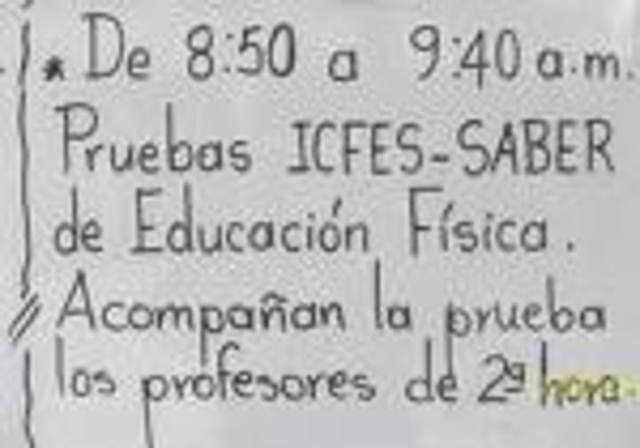 * De 8:50 a 9:40 a.m.
Pruebas ICFES-SABER
de Educación Física.
Acompañan la prueba
los profesores de 2ª hora.